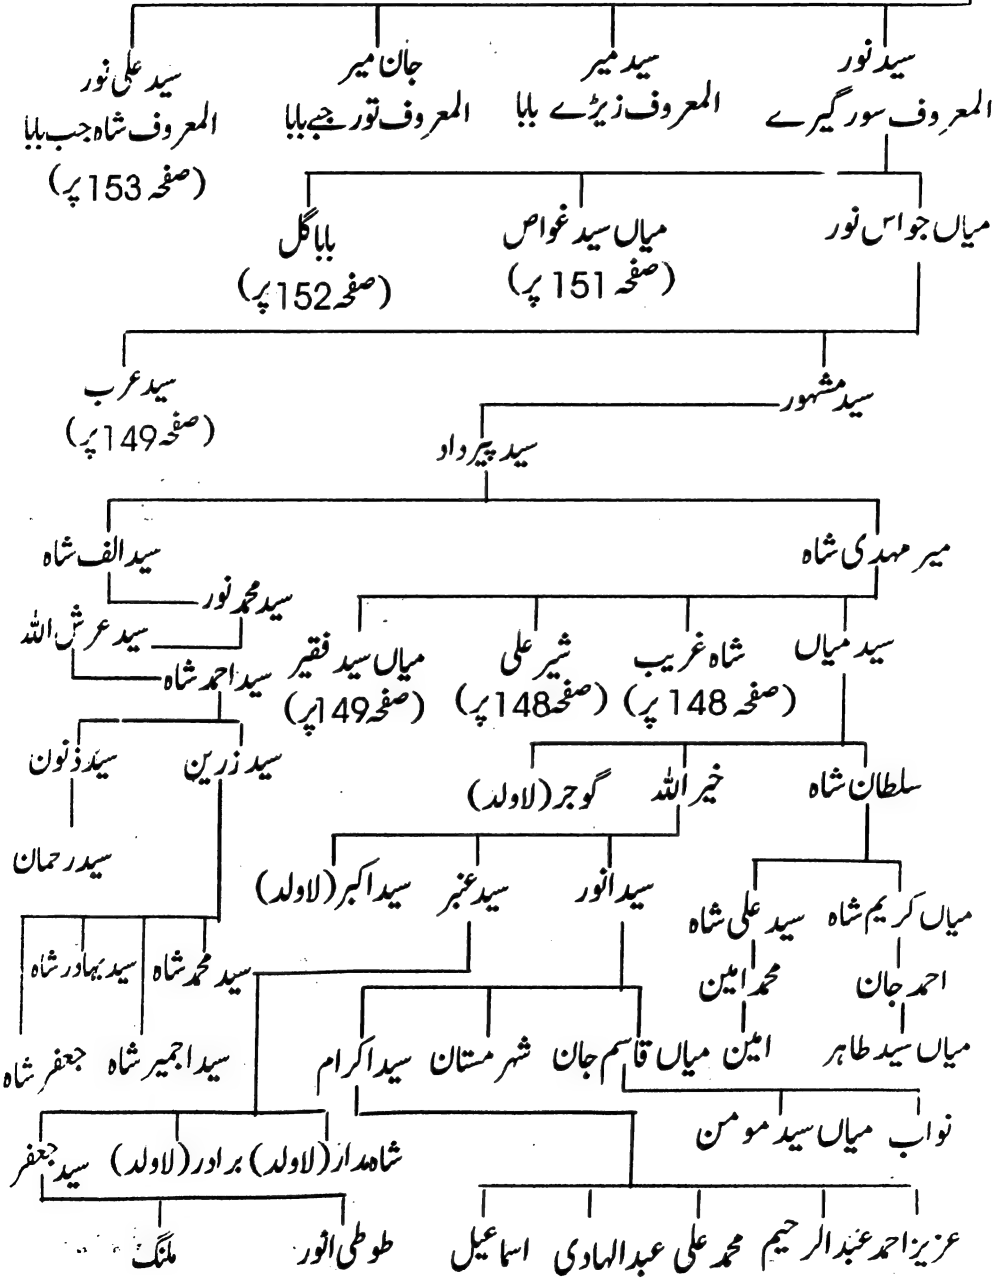 سید نور
المعروف سور گیرے
سید میر
المعروف زیڑے بابا
جان میر
المعروف تور جبے بابا
سید علی نور
المعروف شاہ جب بابا
(صفحہ 153 پر)
میاں جواس نور
میاں سید غواص
(صفحہ 151 پر)
بابا گل
(صفحہ 152 پر)
سید مشہور
سید عرب
(صفحہ 149 پر)
سید پیر داد
میر مہدی شاہ
سید الف شاہ
سید محمد نور
سید عرش اللہ
سید احمد شاہ
سید میاں
شاہ غریب
(صفحہ 148 پر)
شیر علی
(صفحہ 148 پر)
میاں سید فقیر
(صفحہ 149 پر)
سید زرین
سید ذنون
سید رحمان
سلطان شاہ
خیر اللہ
گوجر (لاولد)
سید انور
سید عنبر
سید اکبر (لاولد)
میاں کریم شاہ
سید علی شاہ
احمد جان
محمد امین
میاں سید طاہر
امین
سید محمد شاہ
سید بہادر شاہ
سید اجمیر شاہ
جعفر شاہ
میاں قاسم جان
شہر مستان
سید اکرام
نواب
میاں سید مومن
شاہ مدار (لاولد)
برادر (لاولد)
سید جعفر
عزیز احمد
عبدالرحیم
محمد علی
عبدالہادی
اسماعیل
طوطی انور
ملنگ